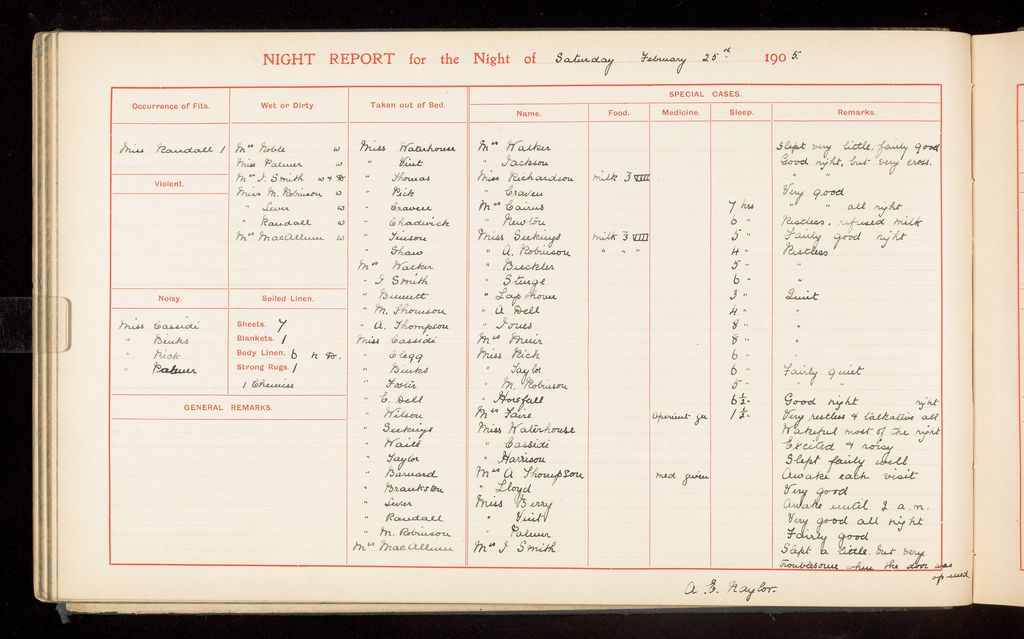 NIGHT REPORT for the Night of Saturday February 25th 1905.
SPECIAL CASES.
Occurrence of Fits. Wet or Dirty. Taken out of Bed. Name. Food. Medicine. Sleep. Remarks.
Miss Randall 1
Violent.
Noisy.
Miss Cassidi
" Binks
" Rick
" Palmer
Mrs Noble w
Miss Palmer w
Mrs J. Smith w + D
Miss M. Robinson w
" Lever w
" Randall w
Mrs MacAllum w
Soiled Linen.
Sheets. 7
Blankets. 1
Body Linen. 6 n D.
Strong Rugs. 1
1 Chemise
GENERAL REMARKS.
Miss Waterhouse
" Vint
" Thomas
" Rick
" Craven
" Chadwick
" Tinson
" Shaw
Mrs Walker
" J Smith
" Bennett
" M. Thomson
" A. Thompson
Miss Cassidi
" Clegg
" Binks
" Foster
" E. Dell
" Wilson
" Seekings
" Waite
" Taylor
" Barnard
" Brankston
" Lever
" Randall
" M. Robinson
Mrs MacAllum
Mrs Walker Slept very little, fairly good
" Jackson Good night, but very cross.
Miss Richardson milk ℥ VIII " "
" Craven Very good
Mrs Cairns 7 hrs " " all night
" Newton 6 " Restless, refused milk
Miss Seekings milk ℥ VIII 5 " Fairly good night
" A. Robinson " " " 4 " Restless
" Buckler 5 " "
" Sturge 6 " "
" Lapthorn 3 " Quiet
" A Dell 4 " "
" Jones 8 " "
Mrs Muir 8 " "
Miss Rich 6 " "
" Taylor 6 " Fairly quiet
" M. Robinson 5 " " "
" Horsfall 6½ " Good night night
Mrs Faire aperient gn 1½ " Very restless & talkative all
Miss Waterhouse Wakeful most of the night
" Cassidi Excited & noisy
" Harrison Slept fairly well
Mrs A Thompson med given Awake each visit
" Lloyd Very good
Miss Berry Awake until 2 a.m.
" Vint Very good all night
" Palmer Fairly good
Mrs J Smith Slept a little. but very
troublesome when the door was
opened
A. E. Naylor.